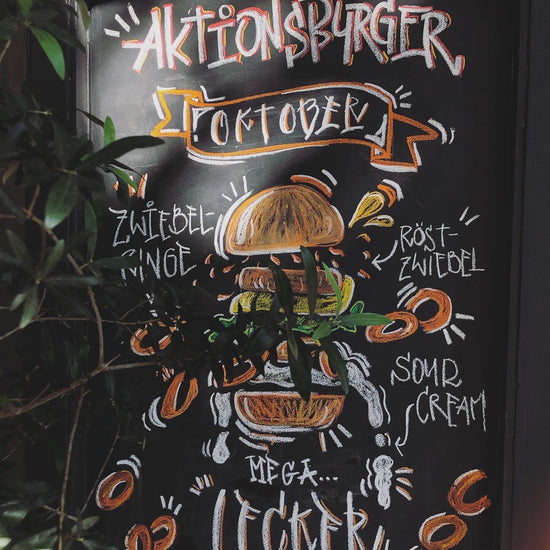 AKTIONSBURGER
OKTOBER
ZWIEBEL-
RINGE
RÖST-
ZWIEBEL
SOUR
CREAM
MEGA...
LECKER